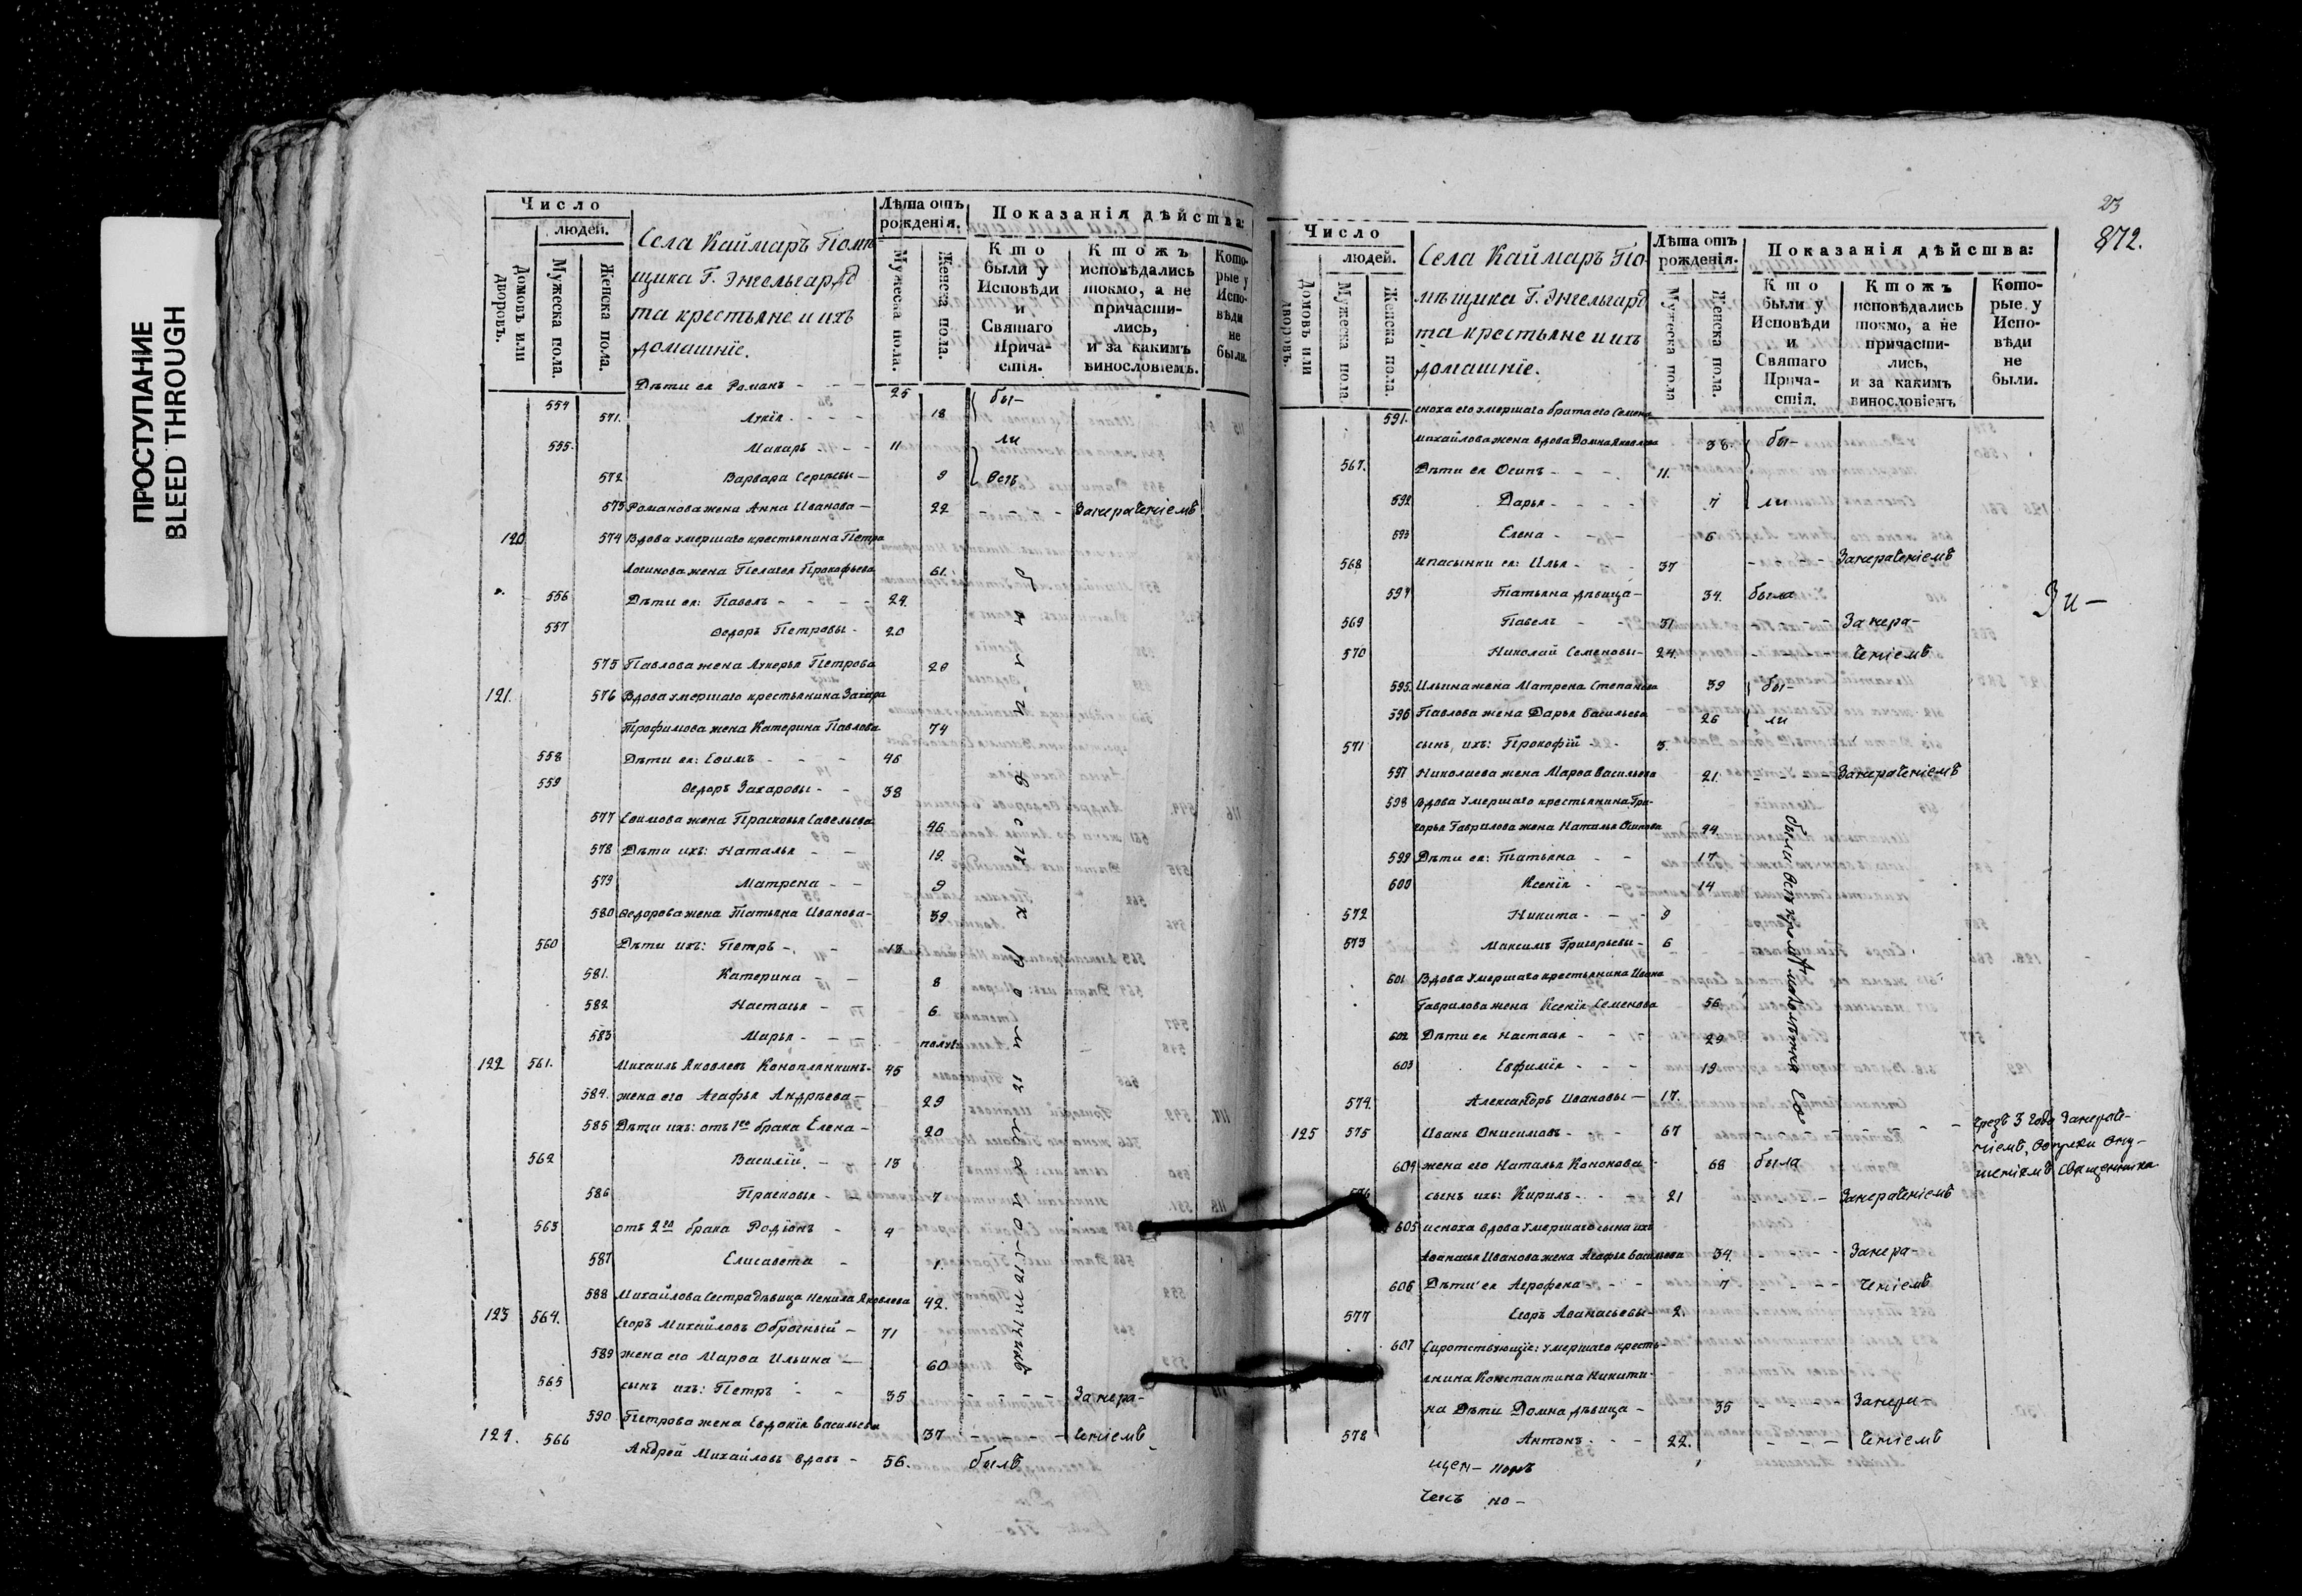 ПРОСТУПАНИЕ
BLEED THROUGH
Число
людей.
Домовъ или дворовъ.
Мужеска пола.
Женска пола.
Села Каймаръ Помѣ
щика Г. Энгельгард
та крестьяне и ихъ
домашніе.
Лѣта отъ рожденія.
Мужеска пола.
Женска пола.
Показанія дѣйства:
Кто были у Исповѣди и Святаго Причастія.
Ктожъ исповѣдались токмо, а не причастились, и за какимъ винословіемъ.
Которые у Исповѣди не были.
554 Дѣти ея Романъ - - - 25 бы-
571. Лукія - - - - 18
555. Макаръ - - 11 ли
572 Варвара Сергѣевы - 9 всѣ
573 Романова жена Анна Иванова - 22 - - - - Занераченіемъ
120 574 Вдова умершаго крестьянина Петра
Логинова жена Пелагея Прокофьева 61.
556 Дѣти ея: Павелъ - - - - 24.
557 Ѳедоръ Петровы - 20
575 Павлова жена Лукерья Петрова 20
121. 576 Вдова умершаго крестьянина Захара
Трофимова жена Катерина Павлова 74
558 Дѣти ея: Еѳимъ - - - 46
559 Ѳедоръ Захаровы - - 38
577 Еѳимова жена Прасковья Савельева 46
578 Дѣти ихъ: Наталья - - 19.
579 Матрена - - 9
580 Ѳедорова жена Татьяна Иванова - 39
560 Дѣти ихъ: Петръ - - 13
581. Катерина - - 8
582 Настасья - - 6
583 Марья - - -
122 561. Михаилъ Яковлевъ Коноплянкинъ - 45
584. жена его Агафья Андрѣева - 29
585 Дѣти ихъ: отъ 1го брака Елена - 20
562 Василій - - 13
586 Прасковья - 7
563 отъ 2го брака Родіонъ - 4
587 Елисавета - 1.
588 Михайлова Сестра дѣвица Ненила Яковлева 42.
123 564. Егоръ Михайловъ Оброчный - 71
589 жена его Марѳа Ильина - 60
565 сынъ ихъ: Петръ - - 35 - - - - Занера-
590 Петрова жена Евдокія Васильева 37 - - - - ченіемъ
124. 566 Андрей Михайловъ вдовъ - 56. былъ
были всѣ кромѣ малолѣтнихъ
23
872.
Число
людей.
Домовъ или дворовъ.
Мужеска пола.
Женска пола.
Села Каймаръ По-
мѣщика Г. Энгельгард
та крестьяне и ихъ
домашніе.
Лѣта отъ рожденія.
Мужеска пола
Женска пола.
Показанія дѣйства:
Кто были у Исповѣди и Святаго Причастія.
Ктожъ исповѣдались токмо, а не причастились, и за какимъ винословіемъ
Которые у Исповѣди не были.
591. сноха его умершаго брата его Семена
Михайлова жена вдова Домна Яковлева 38. бы-
567. Дѣти ея Осипъ - - - 11.
592 Дарья - - - - 7 ли
593 Елена - - - 6
568 и пасынки ея: Илья - - - 37 - - - - Занераченіемъ
594 Татьяна дѣвица - 34. была
Зи-
569 Павелъ - - 31 - - - - Занера-
570 Николай Семеновы - 24. - - - - ченіемъ
595. Ильина жена Матрена Степанова 39 бы-
596 Павлова жена Дарья Васильева 26 ли
571 сынъ ихъ: Прокофій - - 3.
597 Николаева жена Марѳа Васильева 21. - - - - Занераченіемъ
598 Вдова умершаго крестьянина Гри-
горья Гаврилова жена Наталья Осипова 44.
599 Дѣти ея: Татьяна - - 17
600 Ксенія - - 14
572 Никита - - - 9
573 Максимъ Григорьевы - 6
601 Вдова умершаго крестьянина Ивана
Гаврилова жена Ксенія Семенова 56
602 Дѣти ея Настасья - - - 29
603 Евфимія - - - 19
574. Александръ Ивановы - 17.
125 575 Иванъ Онисимовъ - - - 67 - - - - - - чрезъ 3 года Занераче-
ніемъ,
604 жена его Наталья Кононова 68 была
священника
576 сынъ ихъ: Кирилъ - - - 21 - - - - Занераченіемъ
605 и сноха вдова умершаго сына ихъ
Аѳанасья Иванова жена Агафья Васильева 34. - - - - Занера-
606 Дѣти ея Агрофена - - - 7 - - - - ченіемъ
577 Егоръ Аѳанасьевы - 2.
607 Сиротствующіе: умершаго кресть-
янина Константина Никити-
на Дѣти Домна дѣвица - 35 - - - - Занера-
578 Антонъ - - - 22. - - - ченіемъ